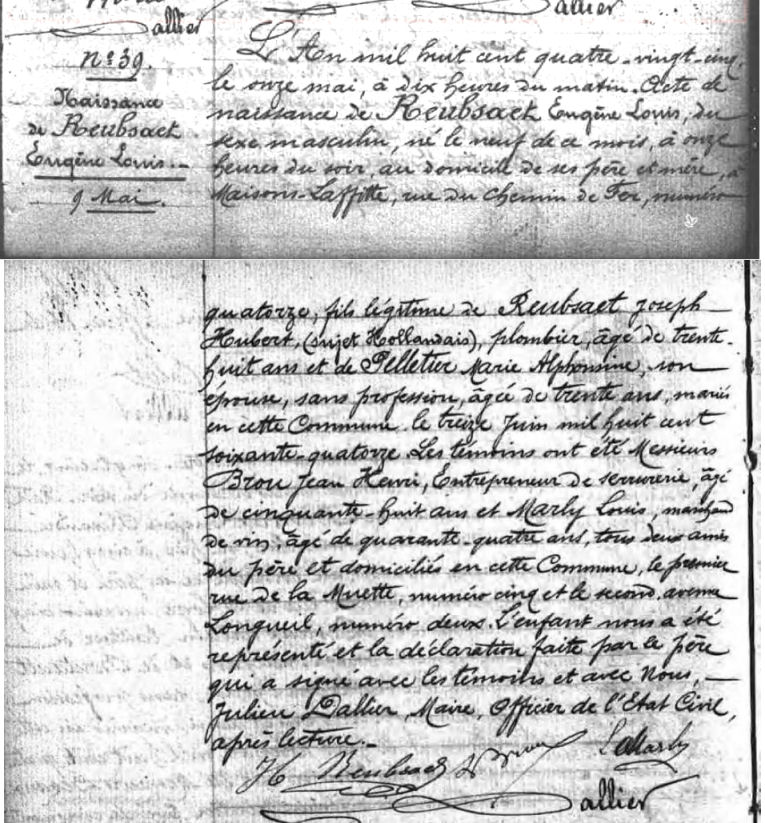 allier
allier
nº 39.
Naissance
de Reubsaet
Eugène Louis.
9 Mai.
L'An mil huit cent quatre-vingt-cinq,
le onze mai, à dix heures du matin. Acte de
naissance de Reubsaet Eugène Louis, du
sexe masculin, né le neuf de ce mois, à onze
heures du soir, au domicile de ses père et mère, à
Maisons-Laffitte, rue du Chemin de Fer, numéro
quatorze, fils légitime de Reubsaet Joseph
Hubert, (sujet Hollandais), plombier, âgé de trente-
huit ans et de Pelletier Marie Alphonsine, son
épouse, sans profession, âgée de trente ans, mariés
en cette Commune le treize Juin mil huit cent
soixante-quatorze. Les témoins ont été Messieurs
Brou Jean Henri, Entrepreneur de serrurerie, âgé
de cinquante-huit ans et Marly Louis, marchand
de vin, âgé de quarante-quatre ans, tous deux amis
du père et domiciliés en cette Commune, le premier
rue de la Muette, numéro cinq et le second, avenue
Longueil, numéro deux. L'enfant nous a été
représenté et la déclaration faite par le père
qui a signé avec les témoins et avec Nous,
Julien Dallier, Maire, Officier de l'Etat Civil,
après lecture.
H Reubsaet Brou L Marly
Dallier